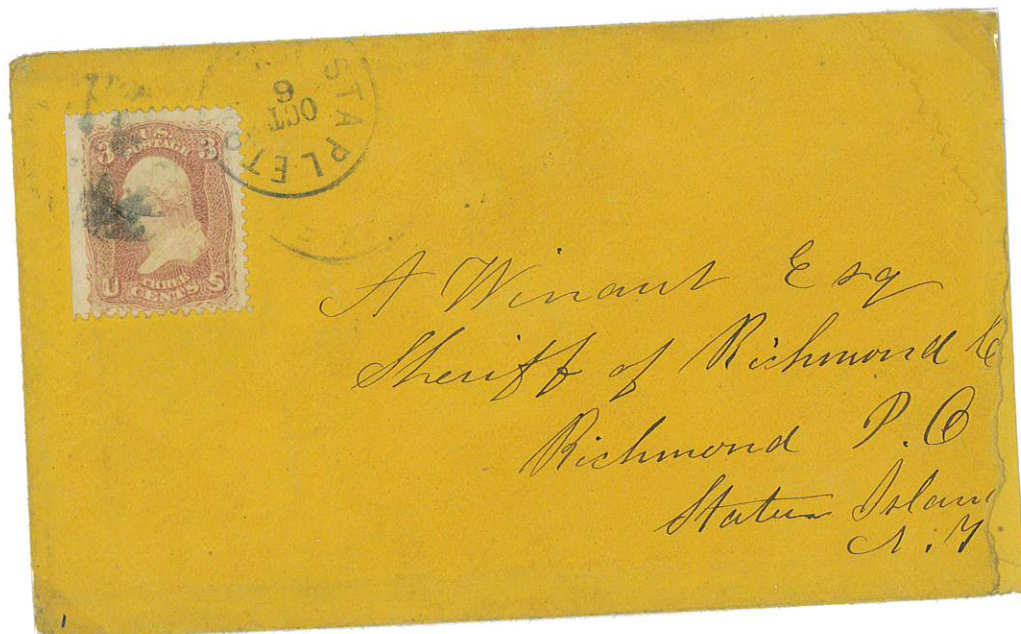 STAPLETO
OCT
6
3 U.S. 3
POSTAGE
THREE
U CENTS S
A Winant Esq
Sheriff of Richmond C
Richmond P.O
Staten Islan
N.Y